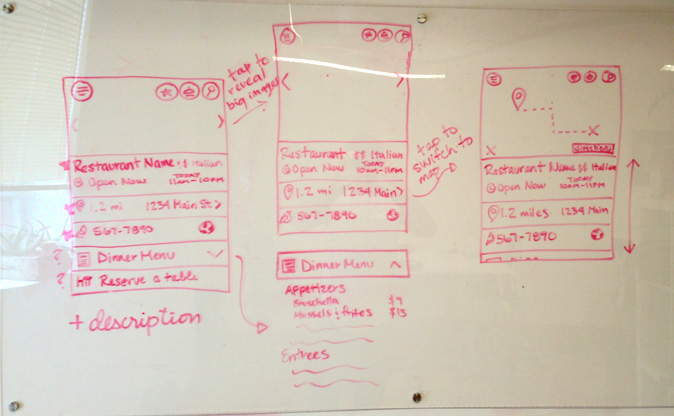 tap to
reveal
big images
Restaurant Name $$ Italian
Open Now TODAY
11AM-10PM
1.2 mi 1234 Main St >
567-7890
? Dinner Menu
? Reserve a table
+ description
Restaurant $$ Italian
Open Now TODAY
10AM-11PM
1.2 mi 1234 Main >
567-7890
Dinner Menu
Appetizers
Bruschetta $9
Mussels & frites $13
Entrees
tap to
switch to
map
Restaurant Name $$ Italian
Open Now TODAY
10AM-11PM
1.2 miles 1234 Main
567-7890